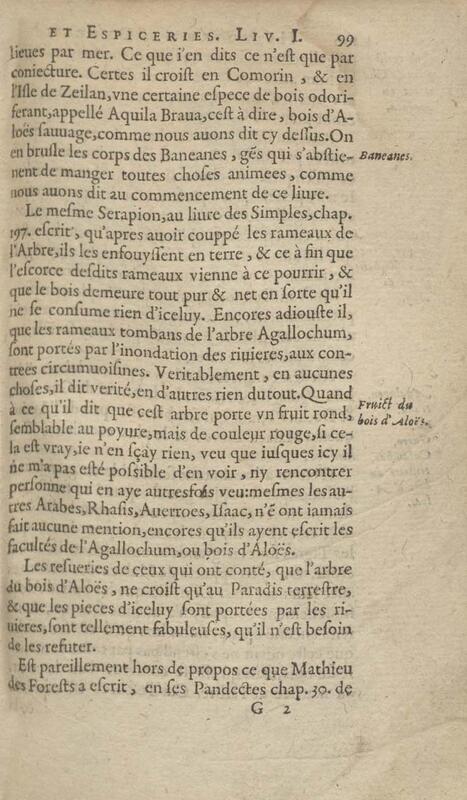 ET ESPICERIES. LIV. I. 99
lieues par mer. Ce que i'en dits ce n'est que par
coniecture. Certes il croist en Comorin, & en
l'Isle de Zeilan, vne certaine espece de bois odori-
ferant, appellé Aquila Braua, cest à dire, bois d'A-
loës sauuage, comme nous auons dit cy dessus. On
en brusle les corps des Baneanes, gẽs qui s'abstie-
nent de manger toutes choses animees, comme
nous auons dit au commencement de ce liure.
Baneanes.
Le mesme Serapion, au liure des Simples, chap.
197. escrit, qu'apres auoir couppé les rameaux de
l'Arbre, ils les enfouyssent en terre, & ce à fin que
l'escorce desdits rameaux vienne à ce pourrir, &
que le bois demeure tout pur & net en sorte qu'il
ne se consume rien d'iceluy. Encores adiouste il,
que les rameaux tombans de l'arbre Agallochum,
sont portés par l'inondation des riuieres, aux con-
trees circumuoisines. Veritablement, en aucunes
choses, il dit verité, en d'autres rien du tout. Quand
à ce qu'il dit que cest arbre porte vn fruit rond,
semblable au poyure, mais de couleur rouge, si ce-
la est vray, ie n'en sçay rien, veu que iusques icy il
ne m'a pas esté possible d'en voir, ny rencontrer
personne qui en aye autresfois veu: mesmes les au-
tres Arabes, Rhasis, Auerroes, Isaac, n'ẽ ont iamais
fait aucune mention, encores qu'ils ayent escrit les
facultés de l'Agallochum, ou bois d'Aloës.
Fruict du
bois d'Aloës.
Les resueries de ceux qui ont conté, que l'arbre
du bois d'Aloës, ne croist qu'au Paradis terrestre,
& que les pieces d'iceluy sont portées par les ri-
uieres, sont tellement fabuleuses, qu'il n'est besoin
de les refuter.
Est pareillement hors de propos ce que Mathieu
des Forests a escrit, en ses Pandectes chap. 30. de
G 2